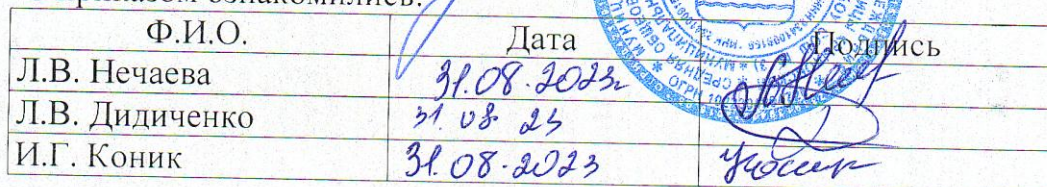 ознакомились.
Ф.И.О. Дата Подпись
Л.В. Нечаева 31.08.2023г
Л.В. Дидиченко 31 08 23
И.Г. Коник 31.08.2023